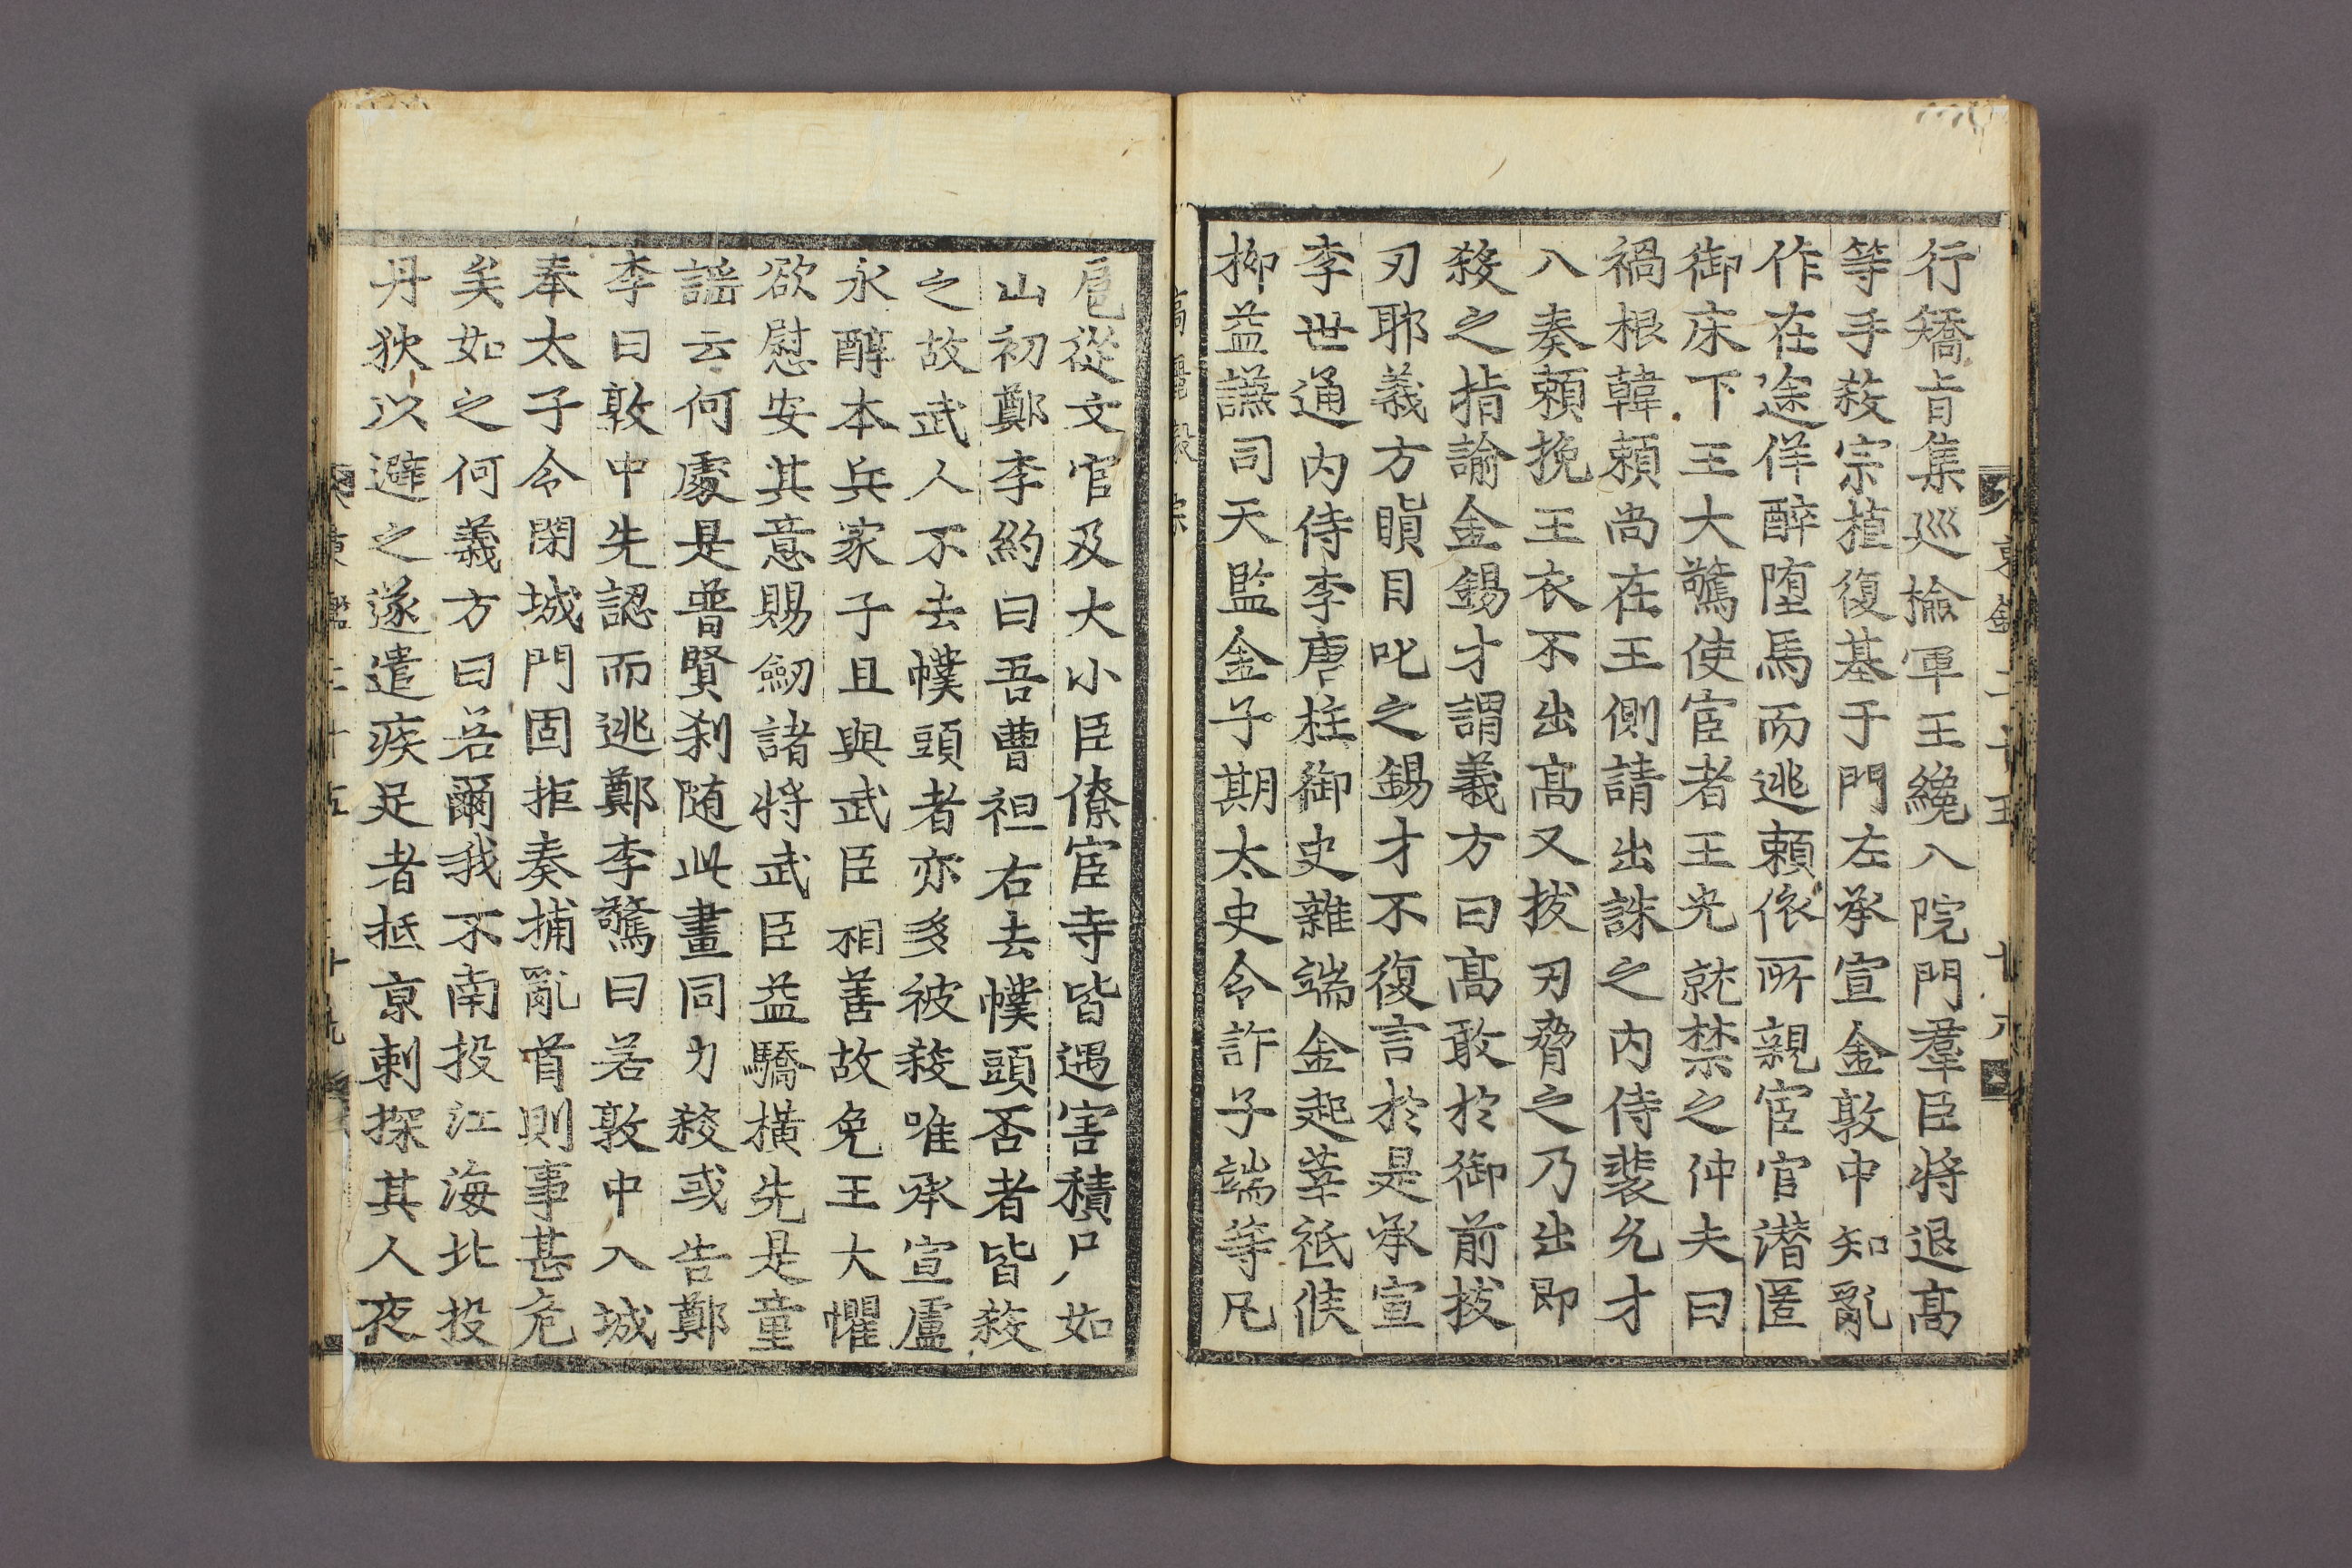 行矯旨集巡檢軍王纔入院門羣臣將退高
等手殺宗植復基于門左承宣金敦中知亂
作在途佯醉墮馬而逃賴依所親宦官潛匿
御床下王大驚使宦者王光就禁之仲夫曰
禍根韓頼尚在王側請出誅之內侍裴允才
入奏頼挽王衣不出高又拔刃脅之乃出即
殺之指諭金錫才謂義方曰高敢於御前拔
刃耶義方瞋目叱之錫才不復言於是承宣
李世通內侍李唐柱御史雜端金起莘祗候
柳益謙司天監金子期太史令許子端等凡
扈從文官及大小臣僚宦寺皆遇害積尸如
山初鄭李約曰吾曹袒右去幞頭否者皆殺
之故武人不去幞頭者亦多被殺唯承宣盧
永醇本兵家子且與武臣相善故免王大懼
欲慰安其意賜劒諸將武臣益驕橫先是童
謡云何處是普賢刹随此畫同力殺或告鄭
李曰敦中先認而逃鄭李驚曰若敦中入城
奉太子令閉城門固拒奏捕亂首則事甚危
矣如之何義方曰若爾我不南投江海北投
丹狄以避之遂遣疾足者抵京刺探其人夜